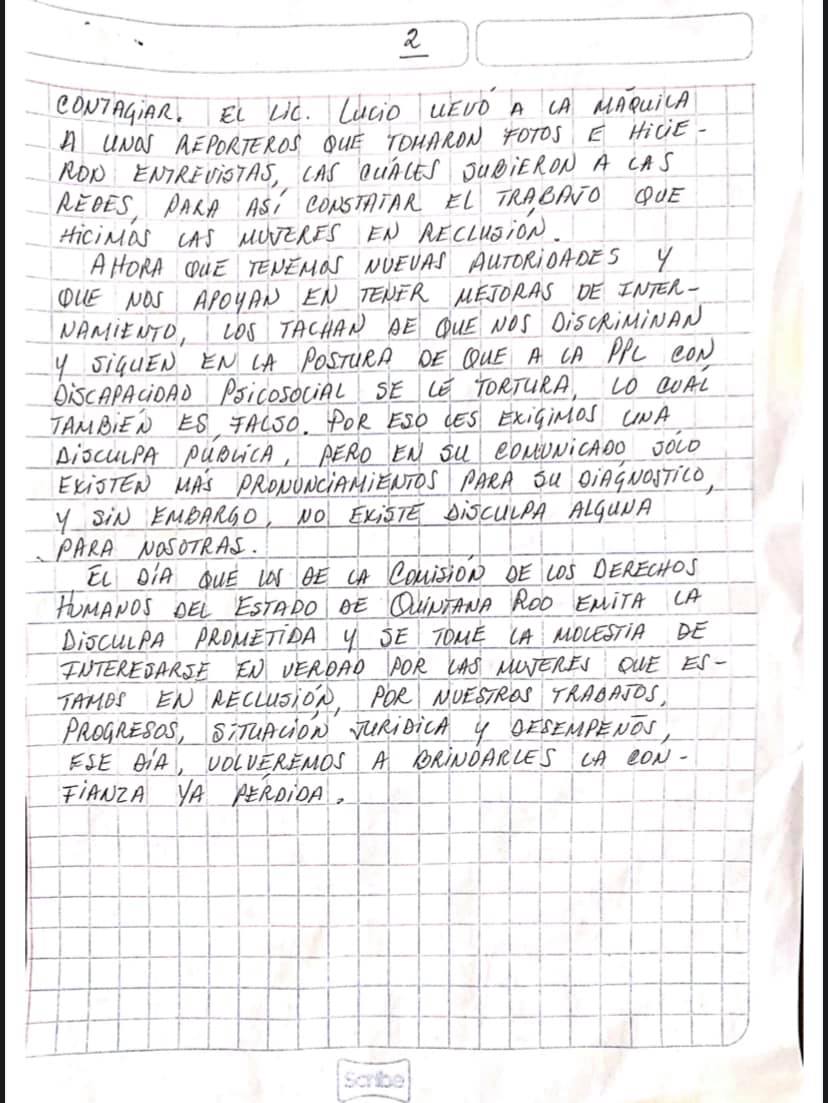 2
CONTAGIAR. EL LIC. LUCIO LLEVÓ A LA MÁQUILA
A UNOS REPORTEROS QUE TOMARON FOTOS E HICIE-
RON ENTREVISTAS, LAS CUÁLES SUBIERON A LAS
REDES, PARA ASÍ CONSTATAR EL TRABAJO QUE
HICIMOS LAS MUJERES EN RECLUSIÓN.
AHORA QUE TENEMOS NUEVAS AUTORIDADES Y
QUE NOS APOYAN EN TENER MEJORAS DE INTER-
NAMIENTO, LOS TACHAN DE QUE NOS DISCRIMINAN
Y SIGUEN EN LA POSTURA DE QUE A LA PPL CON
DISCAPACIDAD PSICOSOCIAL SE LE TORTURA, LO CUAL
TAMBIÉN ES FALSO. POR ESO LES EXIGIMOS UNA
DISCULPA PÚBLICA, PERO EN SU COMUNICADO SÓLO
EXISTEN MÁS PRONUNCIAMIENTOS PARA SU DIÁGNOSTICO,
Y SIN EMBARGO, NO EXISTE DISCULPA ALGUNA
PARA NOSOTRAS.
EL DÍA QUE LOS DE LA COMISIÓN DE LOS DERECHOS
HUMANOS DEL ESTADO DE QUINTANA ROO EMITA LA
DISCULPA PROMETIDA Y SE TOME LA MOLESTIA DE
INTERESARSE EN VERDAD POR LAS MUJERES QUE ES-
TAMOS EN RECLUSIÓN, POR NUESTROS TRABAJOS,
PROGRESOS, SITUACIÓN JURÍDICA Y DESEMPEÑOS,
ESE DÍA, VOLVEREMOS A BRINDARLES LA CON-
FIANZA YA PÉRDIDA.
Scribe